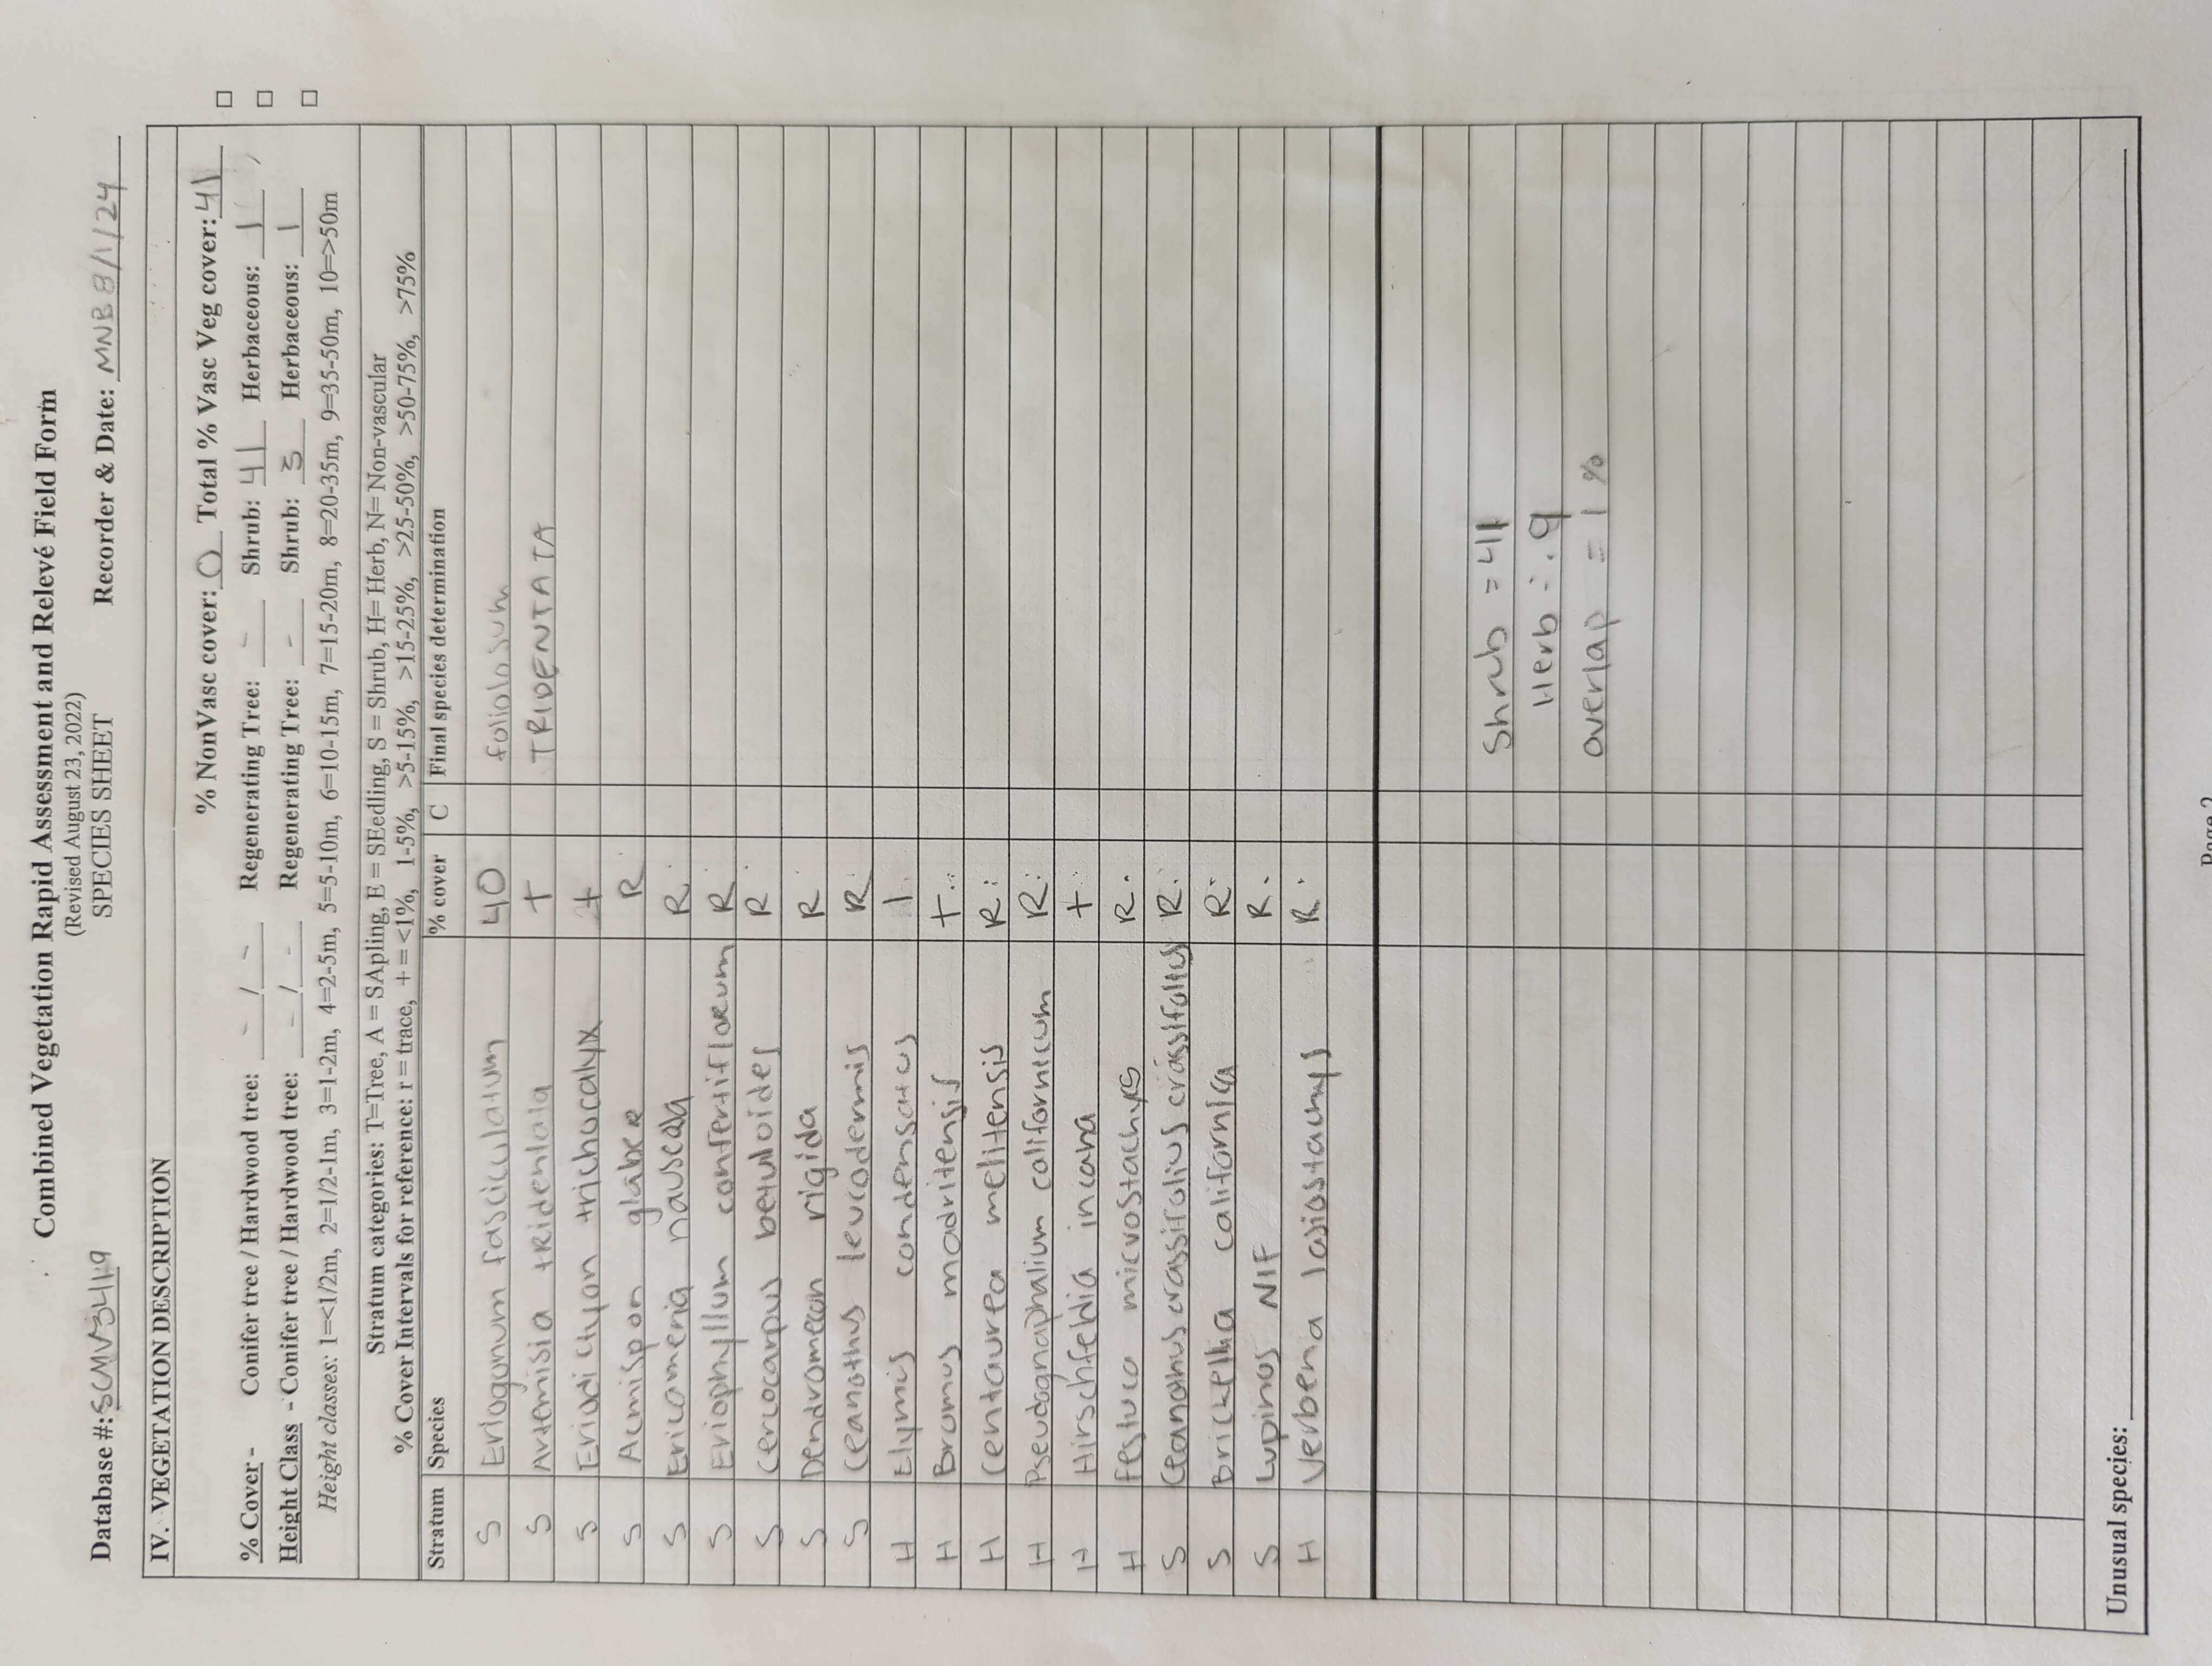 Combined Vegetation Rapid Assessment and Relevé Field Form
(Revised August 23, 2022)
SPECIES SHEET
Database #: SCMV3419 Recorder & Date: MNB 8/1/24
IV. VEGETATION DESCRIPTION
% NonVasc cover: 0 Total % Vasc Veg cover: 41
% Cover - Conifer tree / Hardwood tree: - / - Regenerating Tree: - Shrub: 41 Herbaceous: 1
Height Class - Conifer tree / Hardwood tree: - / - Regenerating Tree: - Shrub: 3 Herbaceous: 1
Height classes: 1=<1/2m, 2=1/2-1m, 3=1-2m, 4=2-5m, 5=5-10m, 6=10-15m, 7=15-20m, 8=20-35m, 9=35-50m, 10=>50m
Stratum categories: T=Tree, A = SApling, E = SEedling, S = Shrub, H= Herb, N= Non-vascular
% Cover Intervals for reference: r = trace, + = <1%, 1-5%, >5-15%, >15-25%, >25-50%, >50-75%, >75%
Stratum Species % cover C Final species determination
S Eriogonum fasciculatum 40 foliolosum
S Artemisia tRidentata + TRIDENTATA
S Eriodictyon trichocalyx +
S Acmispon glabeR R
S Ericameria nauseosa R
S Eriophyllum confertifloRum R
S Cercocarpus betuloides R
S Dendromecon rigida R
S Ceanothus leucodermis R
H Elymus condensatus 1
H Bromus madritensis +
H Centaurea melitensis R
H Pseudognaphalium californicum R
H Hirschfeldia incana +
H Festuca microstachys R
S Ceanothus crassifolius crassifolius R
S Brickellia californica R
S Lupinos NIF R
H Verbena lasiostachys R
Shrub = 41
Herb = .9
overlap = 1 %
Unusual species:
Page 2